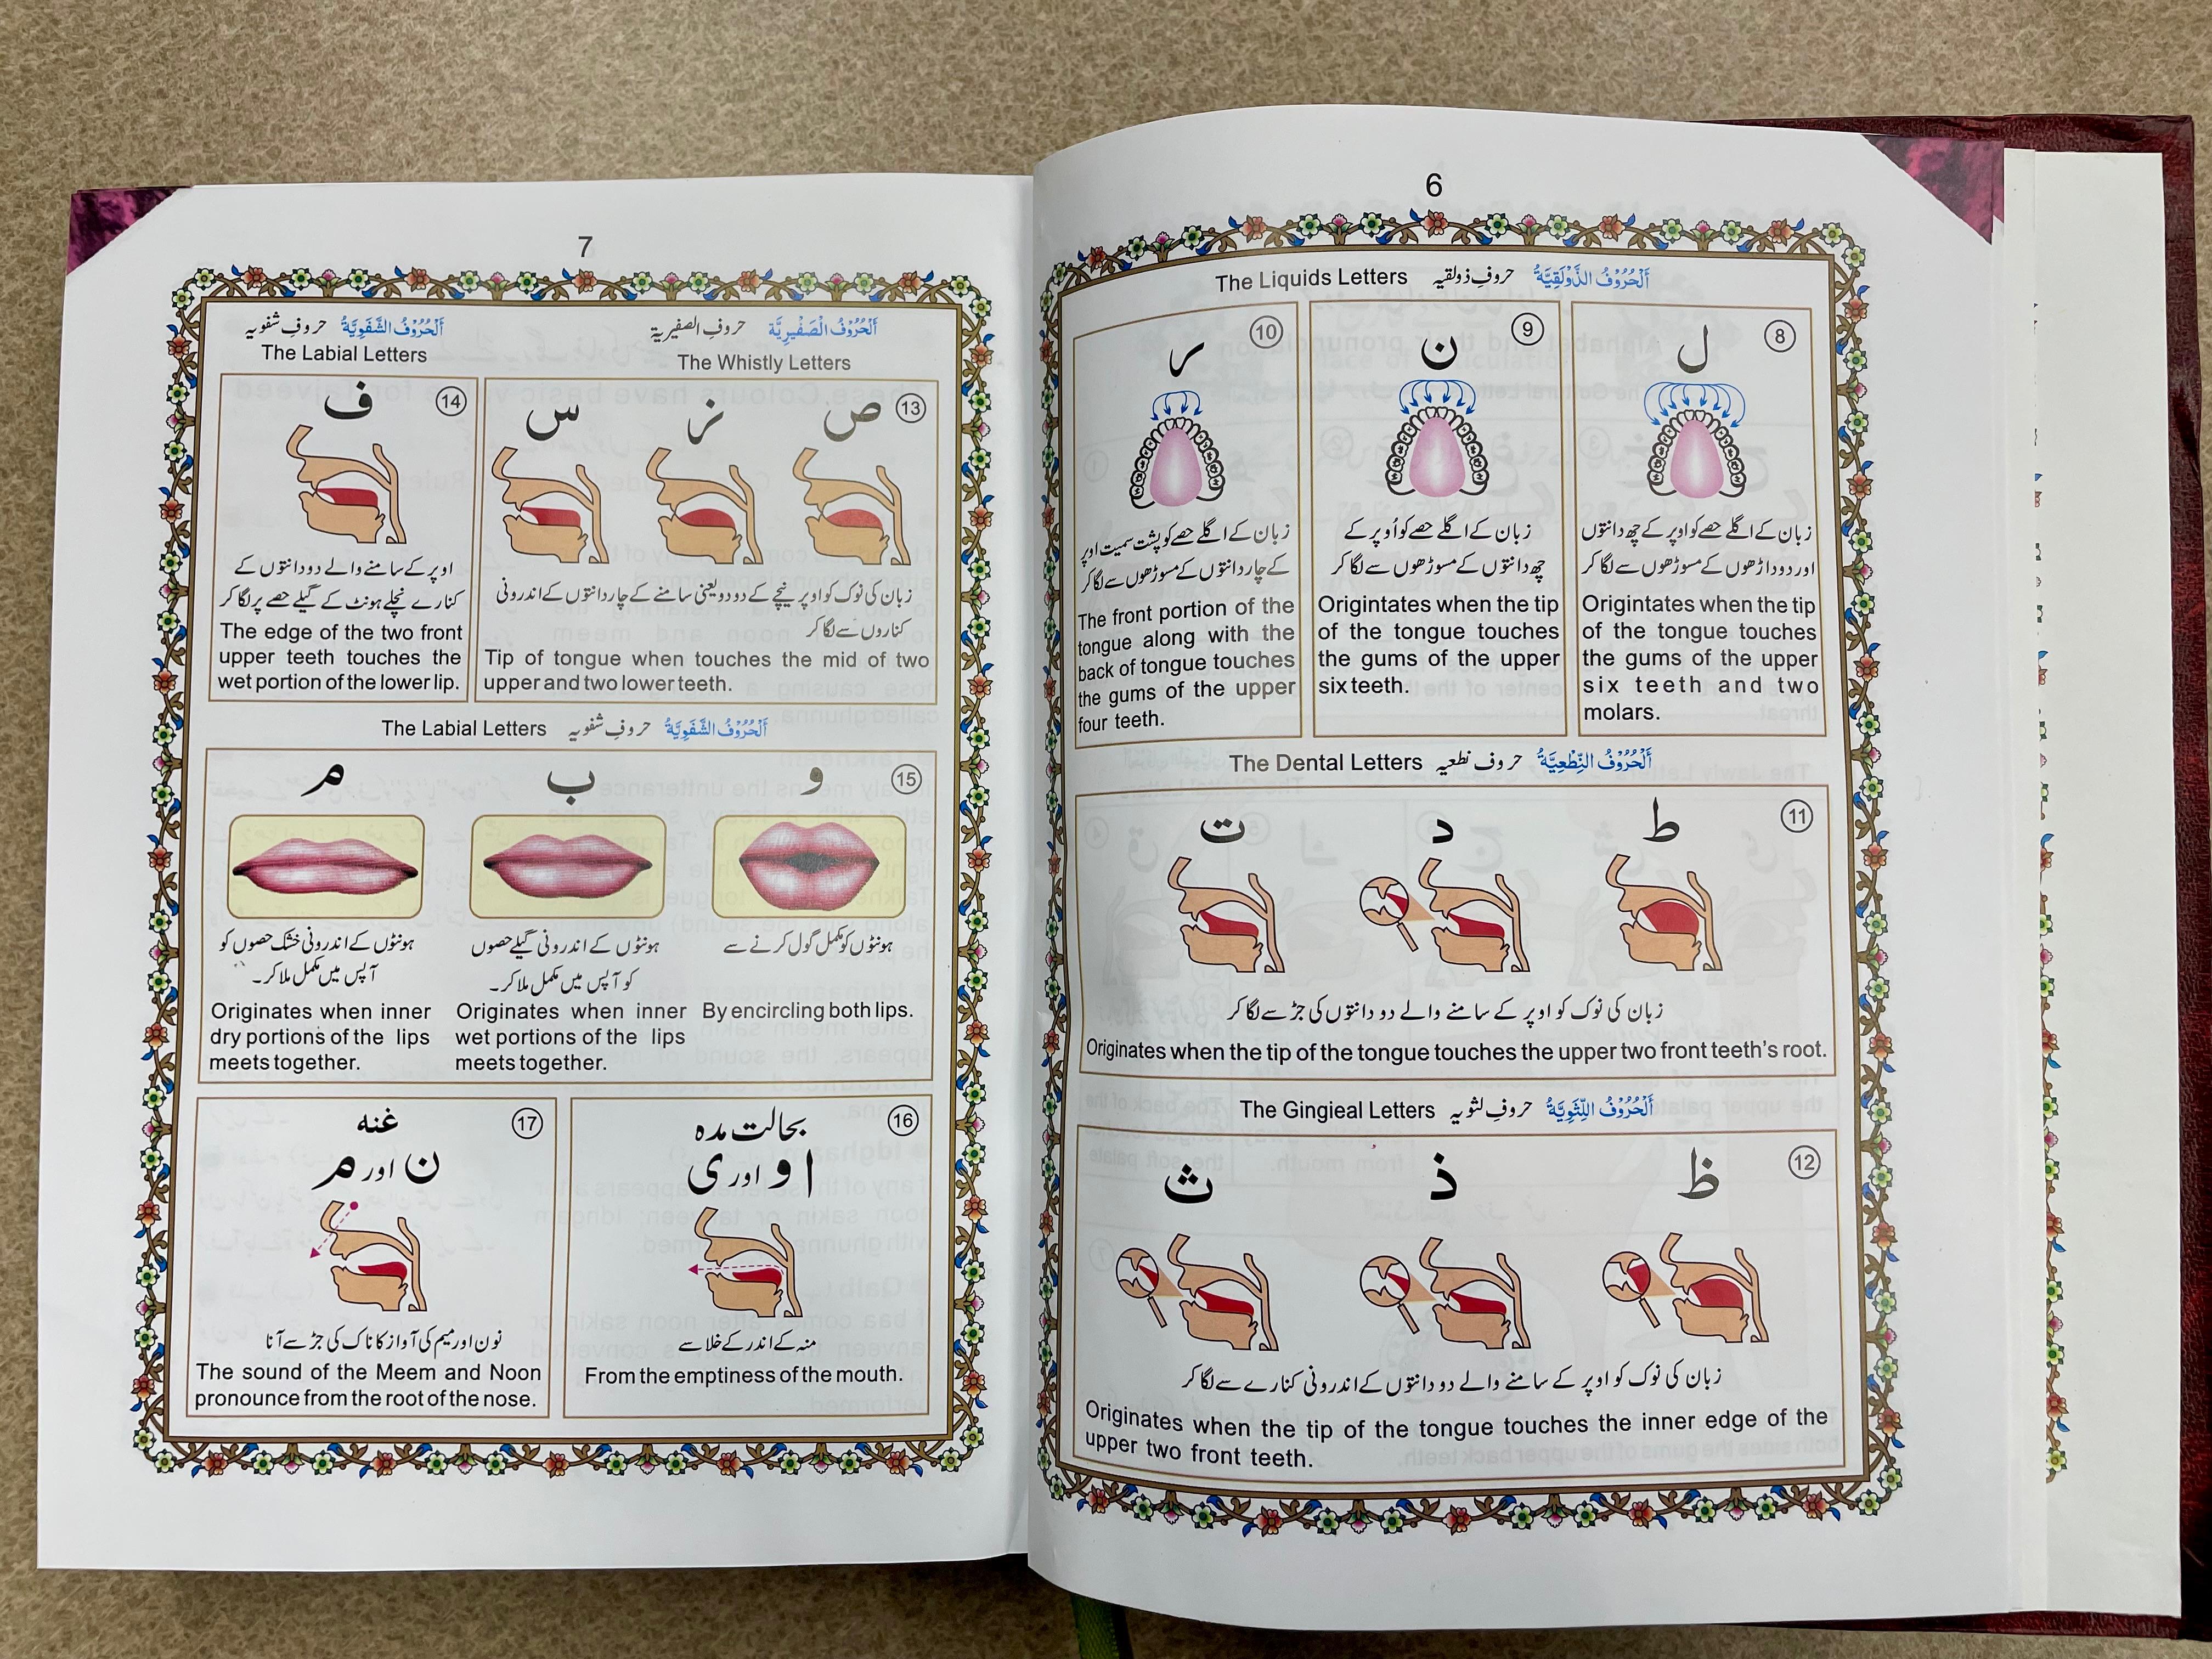 6
The Liquids Letters حروفِ ذولقیہ اَلْحُرُوْفُ الذَّوْلَقِيَّةُ
8
ل
زبان کے اگلے حصے کو اوپر کے چھ دانتوں
اور دو داڑھوں کے مسوڑھوں سے لگا کر
Origintates when the tip
of the tongue touches
the gums of the upper
six teeth and two
molars.
9
ن
زبان کے اگلے حصے کو اُوپر کے
چھ دانتوں کے مسوڑھوں سے لگا کر
Origintates when the tip
of the tongue touches
the gums of the upper
six teeth.
10
ر
زبان کے اگلے حصے کو پشت سمیت اوپر
کے چار دانتوں کے مسوڑھوں سے لگا کر
The front portion of the
tongue along with the
back of tongue touches
the gums of the upper
four teeth.
The Dental Letters حروف نطعیہ اَلْحُرُوْفُ النِّطْعِيَّةُ
11
ط د ت
زبان کی نوک کو اوپر کے سامنے والے دو دانتوں کی جڑ سے لگا کر
Originates when the tip of the tongue touches the upper two front teeth's root.
The Gingieal Letters حروفِ لثویہ اَلْحُرُوْفُ اللِّثَوِيَّةُ
12
ظ ذ ث
زبان کی نوک کو اوپر کے سامنے والے دو دانتوں کے اندرونی کنارے سے لگا کر
Originates when the tip of the tongue touches the inner edge of the
upper two front teeth.
7
اَلْحُرُوْفُ الْصَفْيرِيَّة حروفِ الصفیریۃ
The Whistly Letters
13
ص ز س
زبان کی نوک کو اوپر نیچے کے دو دو یعنی سامنے کے چار دانتوں کے اندرونی
کناروں سے لگا کر
Tip of tongue when touches the mid of two
upper and two lower teeth.
اَلْحُرُوْفُ الشَّفَوِيَّةُ حروفِ شفویہ
The Labial Letters
14
ف
اوپر کے سامنے والے دو دانتوں کے
کنارے نچلے ہونٹ کے گیلے حصے پر لگا کر
The edge of the two front
upper teeth touches the
wet portion of the lower lip.
The Labial Letters حروفِ شفویہ اَلْحُرُوْفُ الشَّفَوِيَّةُ
15
و
ہونٹوں کو مکمل گول کرنے سے
By encircling both lips.
ب
ہونٹوں کے اندرونی گیلے حصوں
کو آپس میں مکمل ملا کر۔
Originates when inner
wet portions of the lips
meets together.
م
ہونٹوں کے اندرونی خشک حصوں کو
آپس میں مکمل ملا کر۔
Originates when inner
dry portions of the lips
meets together.
16
بحالت مدہ
ا و اور ی
منہ کے اندر کے خلا سے
From the emptiness of the mouth.
17
غنہ
ن اور م
نون اور میم کی آواز کا ناک کی جڑ سے آنا
The sound of the Meem and Noon
pronounce from the root of the nose.